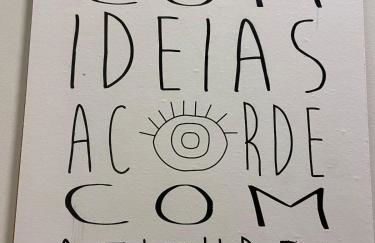 COM
IDEIAS
ACORDE
COM